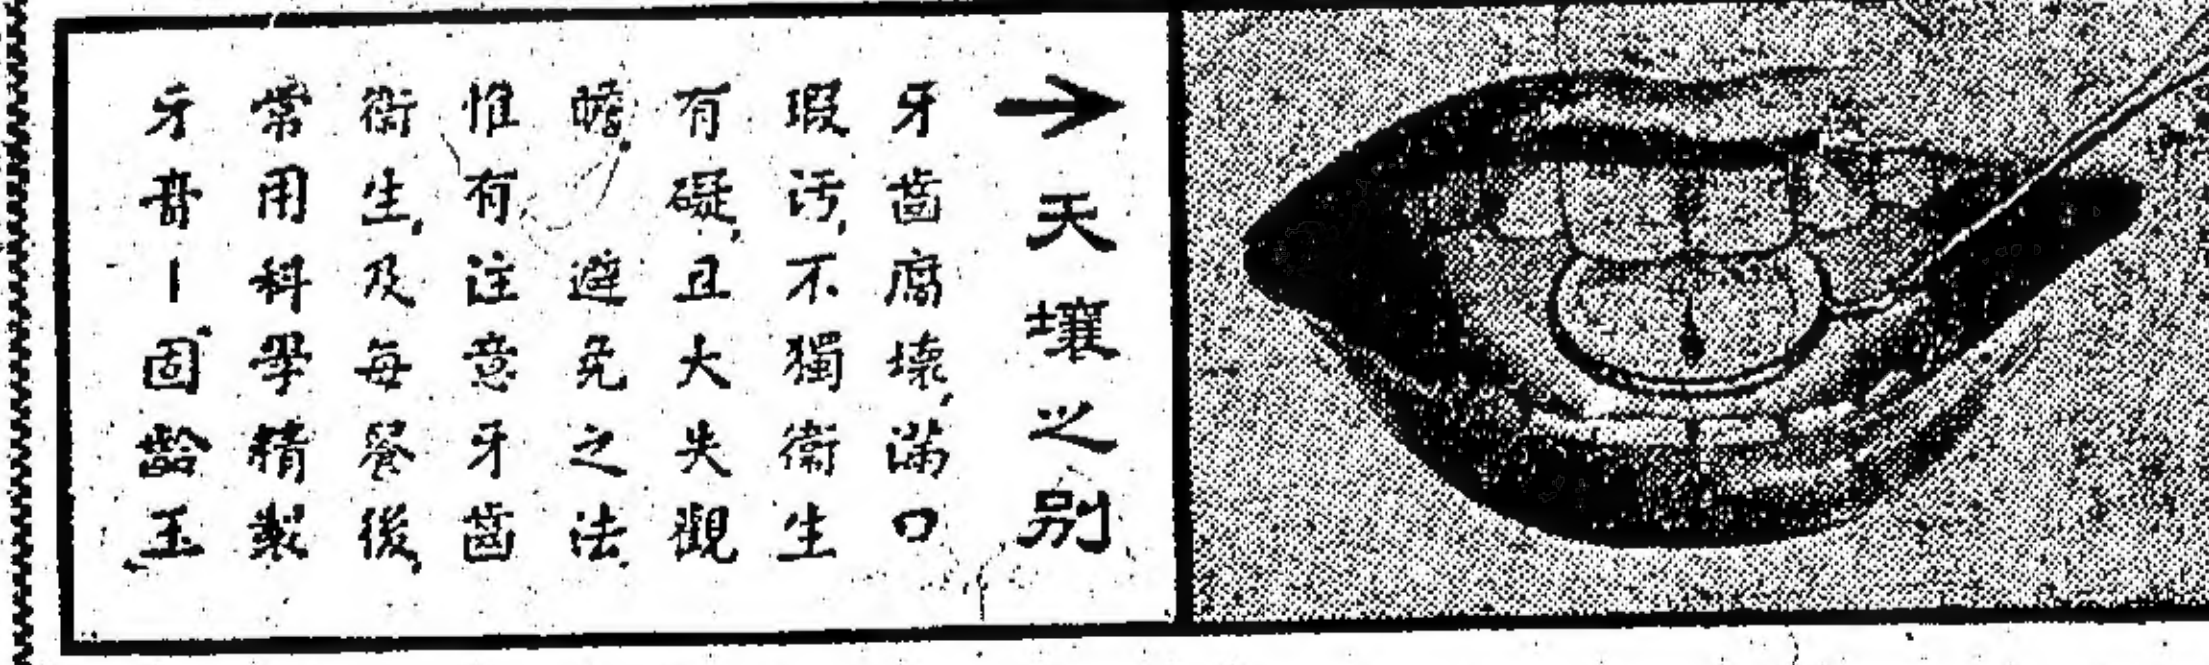 →天壤之別
牙齒腐壞,滿口
瑕污,不獨衛生
有礙,且大失觀
瞻,避免之法,
惟有注意牙齒
衛生,及每餐後,
常用科學精製
牙膏—固齡玉